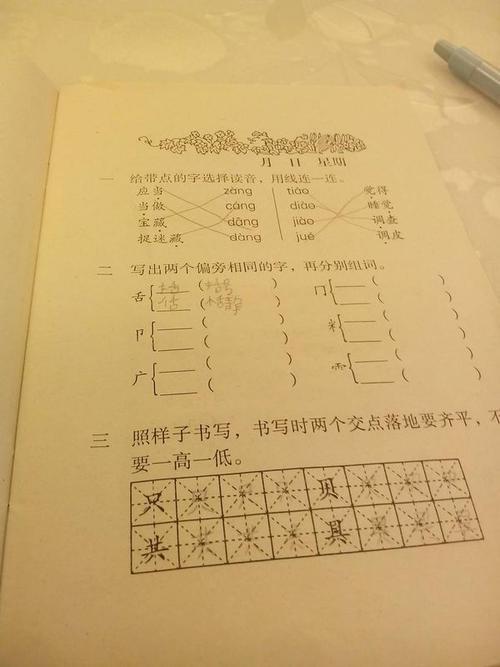 月 日 星期
一 给带点的字选择读音，用线连一连。
应当 zàng tiáo 觉得
当做 cáng diào 睡觉
宝藏 dāng jiào 调查
捉迷藏 dàng jué 调皮
二 写出两个偏旁相同的字，再分别组词。
舌 括（括号） 冂 （ ）
（ ）
卩 （ ） 米 （ ）
（ ） （ ）
广 （ ） ⻗ （ ）
（ ） （ ）
三 照样子书写，书写时两个交点落地要齐平，不
要一高一低。
只 贝
共 具